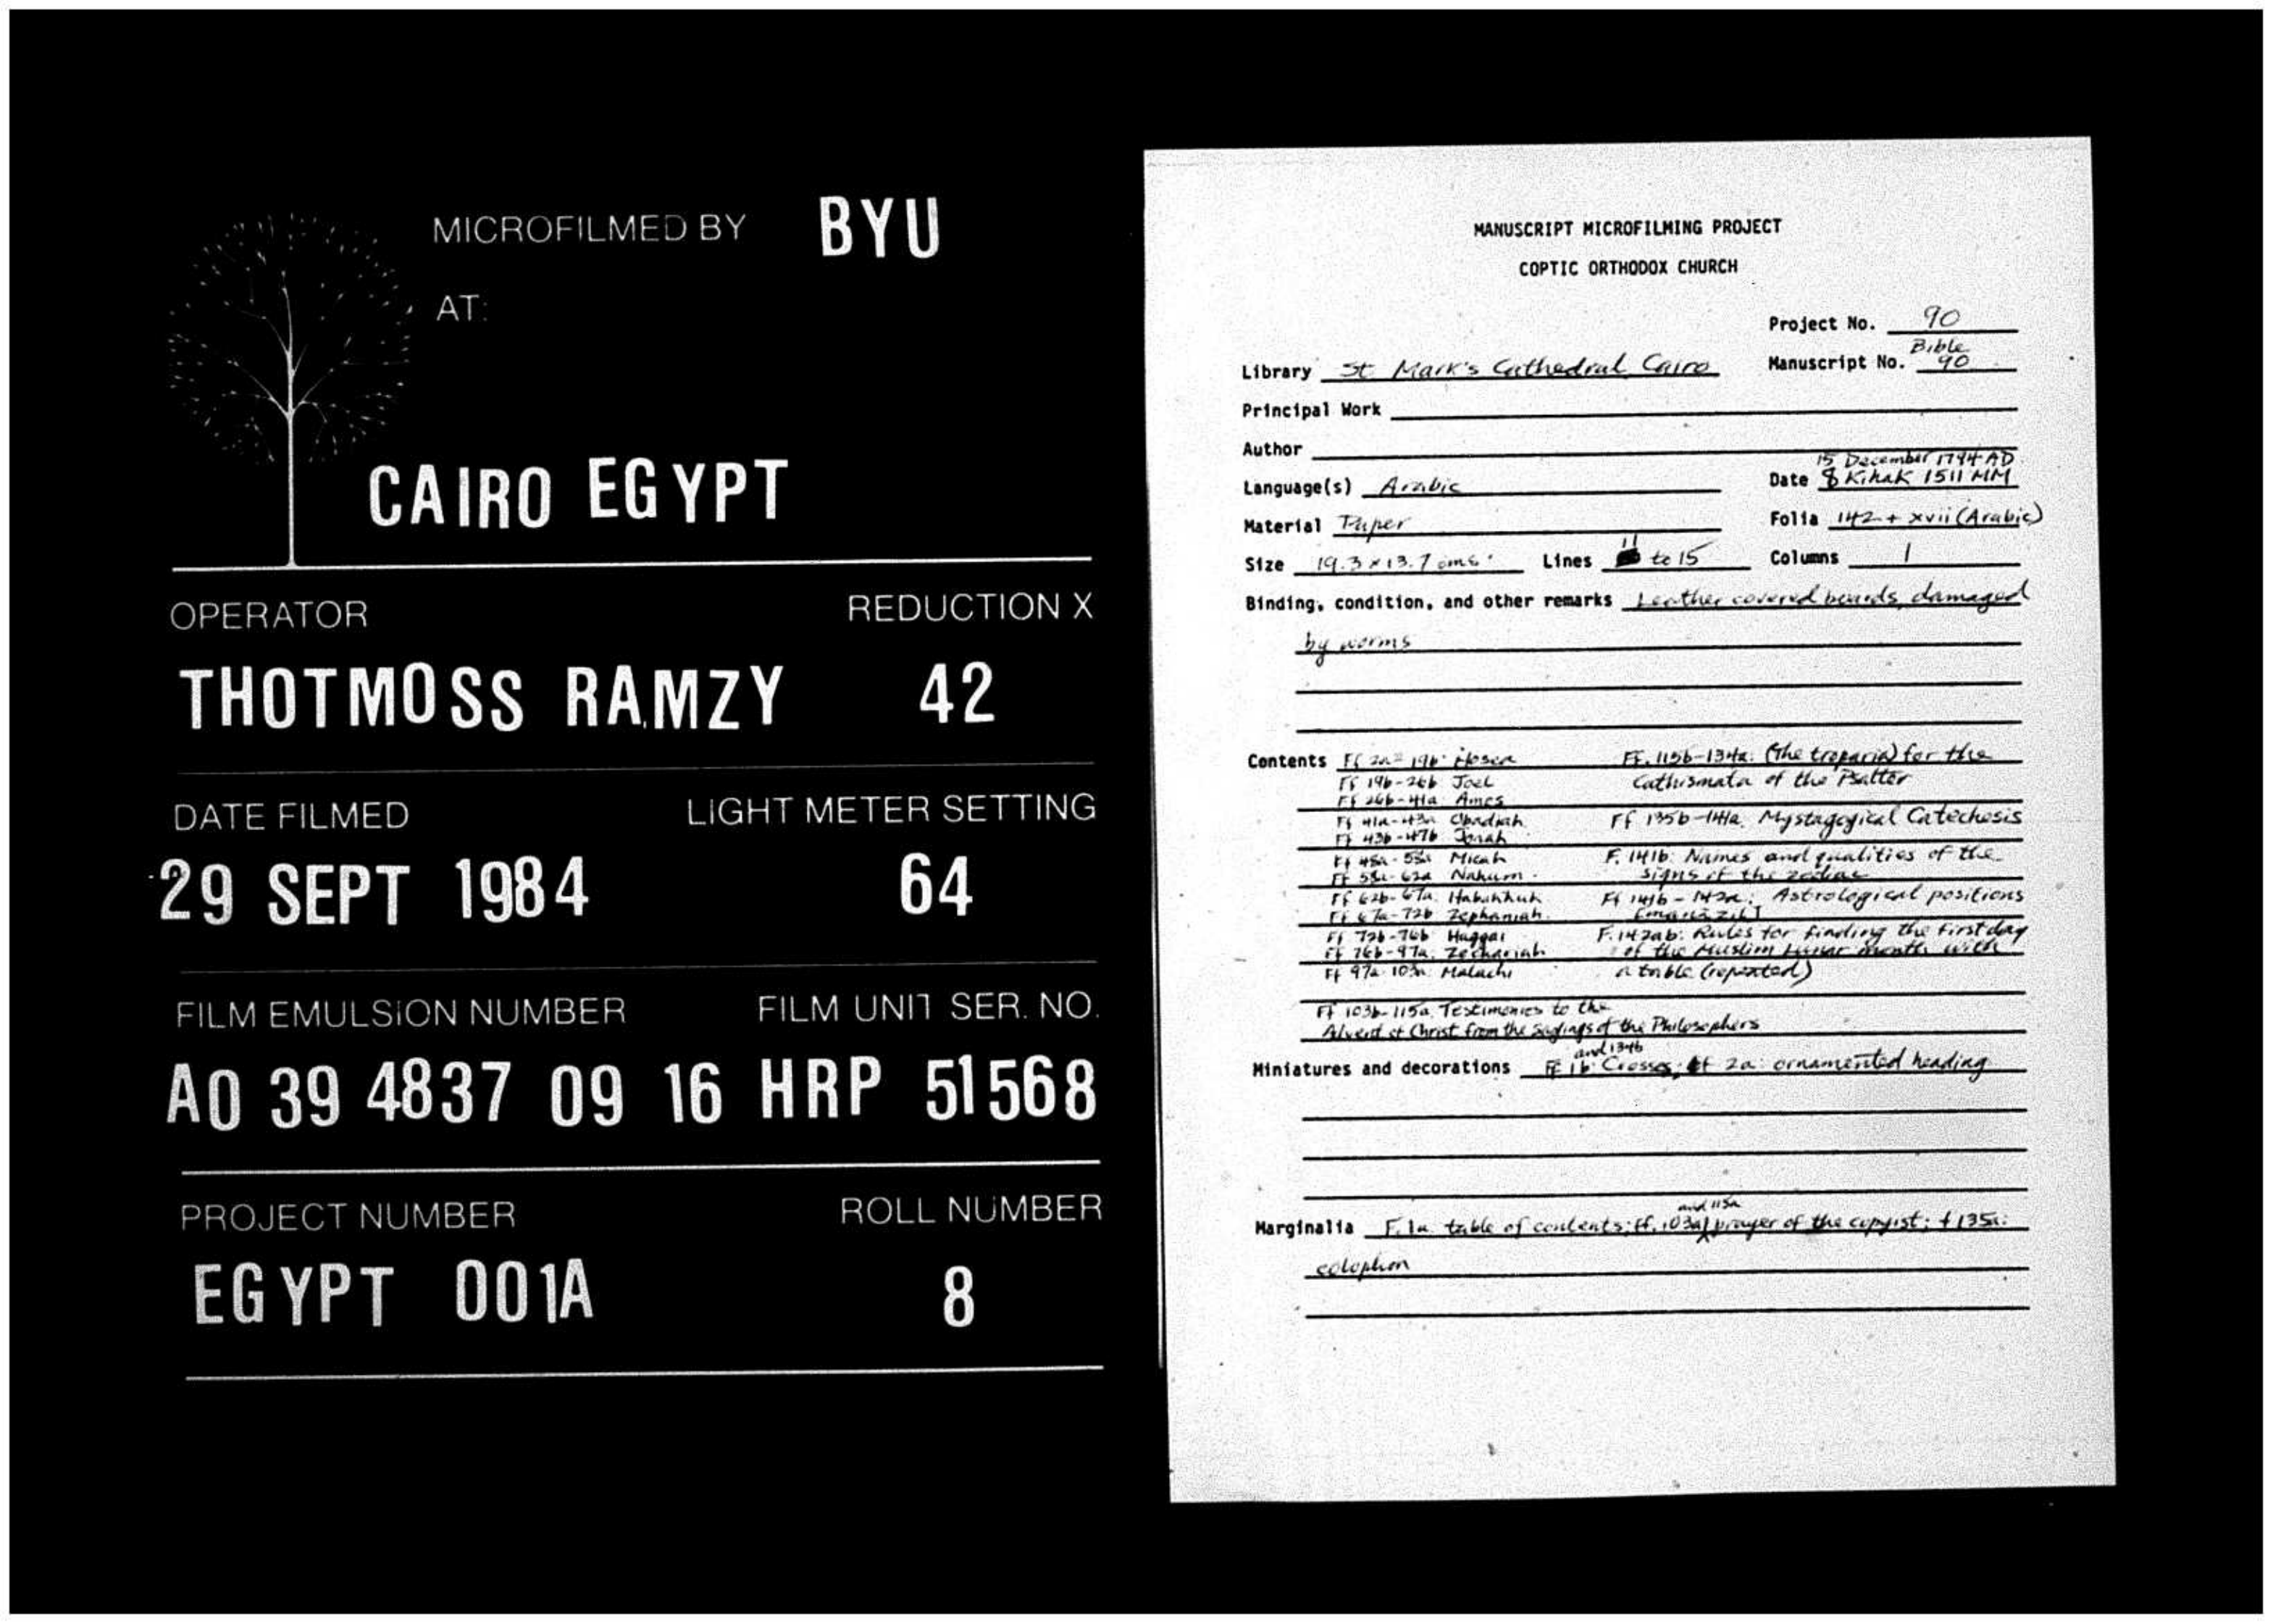 MICROFILMED BY BYU
AT:
CAIRO EGYPT
OPERATOR REDUCTION X
THOTMOSS RAMZY 42
DATE FILMED LIGHT METER SETTING
29 SEPT 1984 64
FILM EMULSION NUMBER FILM UNIT SER. NO.
A0 39 4837 09 16 HRP 51568
PROJECT NUMBER ROLL NUMBER
EGYPT 001A 8
MANUSCRIPT MICROFILMING PROJECT
COPTIC ORTHODOX CHURCH
Project No. 90
Library St Mark's Cathedral Cairo Manuscript No. Bible 90
Principal Work
Author
15 December 1794 AD
Language(s) Arabic Date 8 Kihak 1511 MM
Material Paper Folia 142 + xvii (Arabic)
Size 19.3 x 13.7 cms. Lines 11 to 15 Columns 1
Binding, condition, and other remarks Leather covered boards, damaged
by worms
Contents Ff 2a-19b: Hosea
Ff 19b-26b Joel
Ff 26b-41a Amos
Ff 41a-43a Obadiah
Ff 43b-47b Jonah
Micah
Nahum
Ff 62b-67a Habakkuk
Ff 67a-72b Zephaniah
Ff 72b-76b Haggai
Ff 76b-97a Zechariah
Ff 97a-103a Malachi
Ff 103b-115a Testimonies to the
Advent of Christ from the Sayings of the Philosophers
Ff. 115b-134a: (The troparia) for the
Cathismata of the Psalter
Ff 135b-141a. Mystagogical Catechesis
F. 141b: Names and qualities of the
signs of the zodiac
Ff 141b-142a: Astrological positions
[manāzil]
F. 142ab: Rules for finding the first day
of the Muslim Lunar month with
a table (repeated)
and 134b
Miniatures and decorations Ff 1b: Crosses; ff 2a: ornamented heading
and 115a
Marginalia F. 1a table of contents; ff. 103a prayer of the copyist; f 135a:
colophon